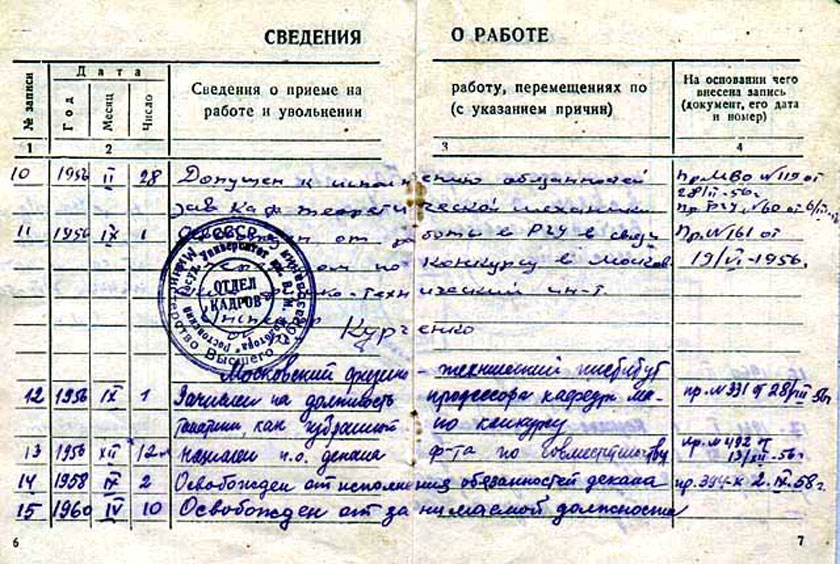 СВЕДЕНИЯ О РАБОТЕ
№ записи
Дата
Год
Месяц
Число
Сведения о приеме на работу, перемещениях по
работе и увольнении (с указанием причин)
На основании чего
внесена запись
(документ, его дата
и номер)
1 2 3 4
10 1956 II 28 Допущен к исполнению обязанностей Пр. МВО №119 от
28/II-56г.
зав. каф. теоретической механики Пр. РГУ №60 от 6/
11 1956 IX 1 от работы в РГУ в связи Пр. №161 от
по конкурсу в Москов 19/VI-1956г.
технический ин-т.
Инспектор Курченко
СССР
Министерство Высшего Образования
Ростовский Госуд. Университет им. В. М. Молотова
ОТДЕЛ
КАДРОВ
Московский физико-технический институт
12 1956 IX 1 Зачислен на должность профессора кафедры ма- пр. №331 от 28/VIII 56г
тематики, как избранный по конкурсу
13 1956 XII 12 Назначен и.о. декана ф-та по совместительству пр. №492 от
13/XII-56г.
14 1958 IX 2 Освобожден от исполнения обязанностей декана пр. 394-к 2.IX.58г.
15 1960 IV 10 Освобожден от занимаемой должности
6 7